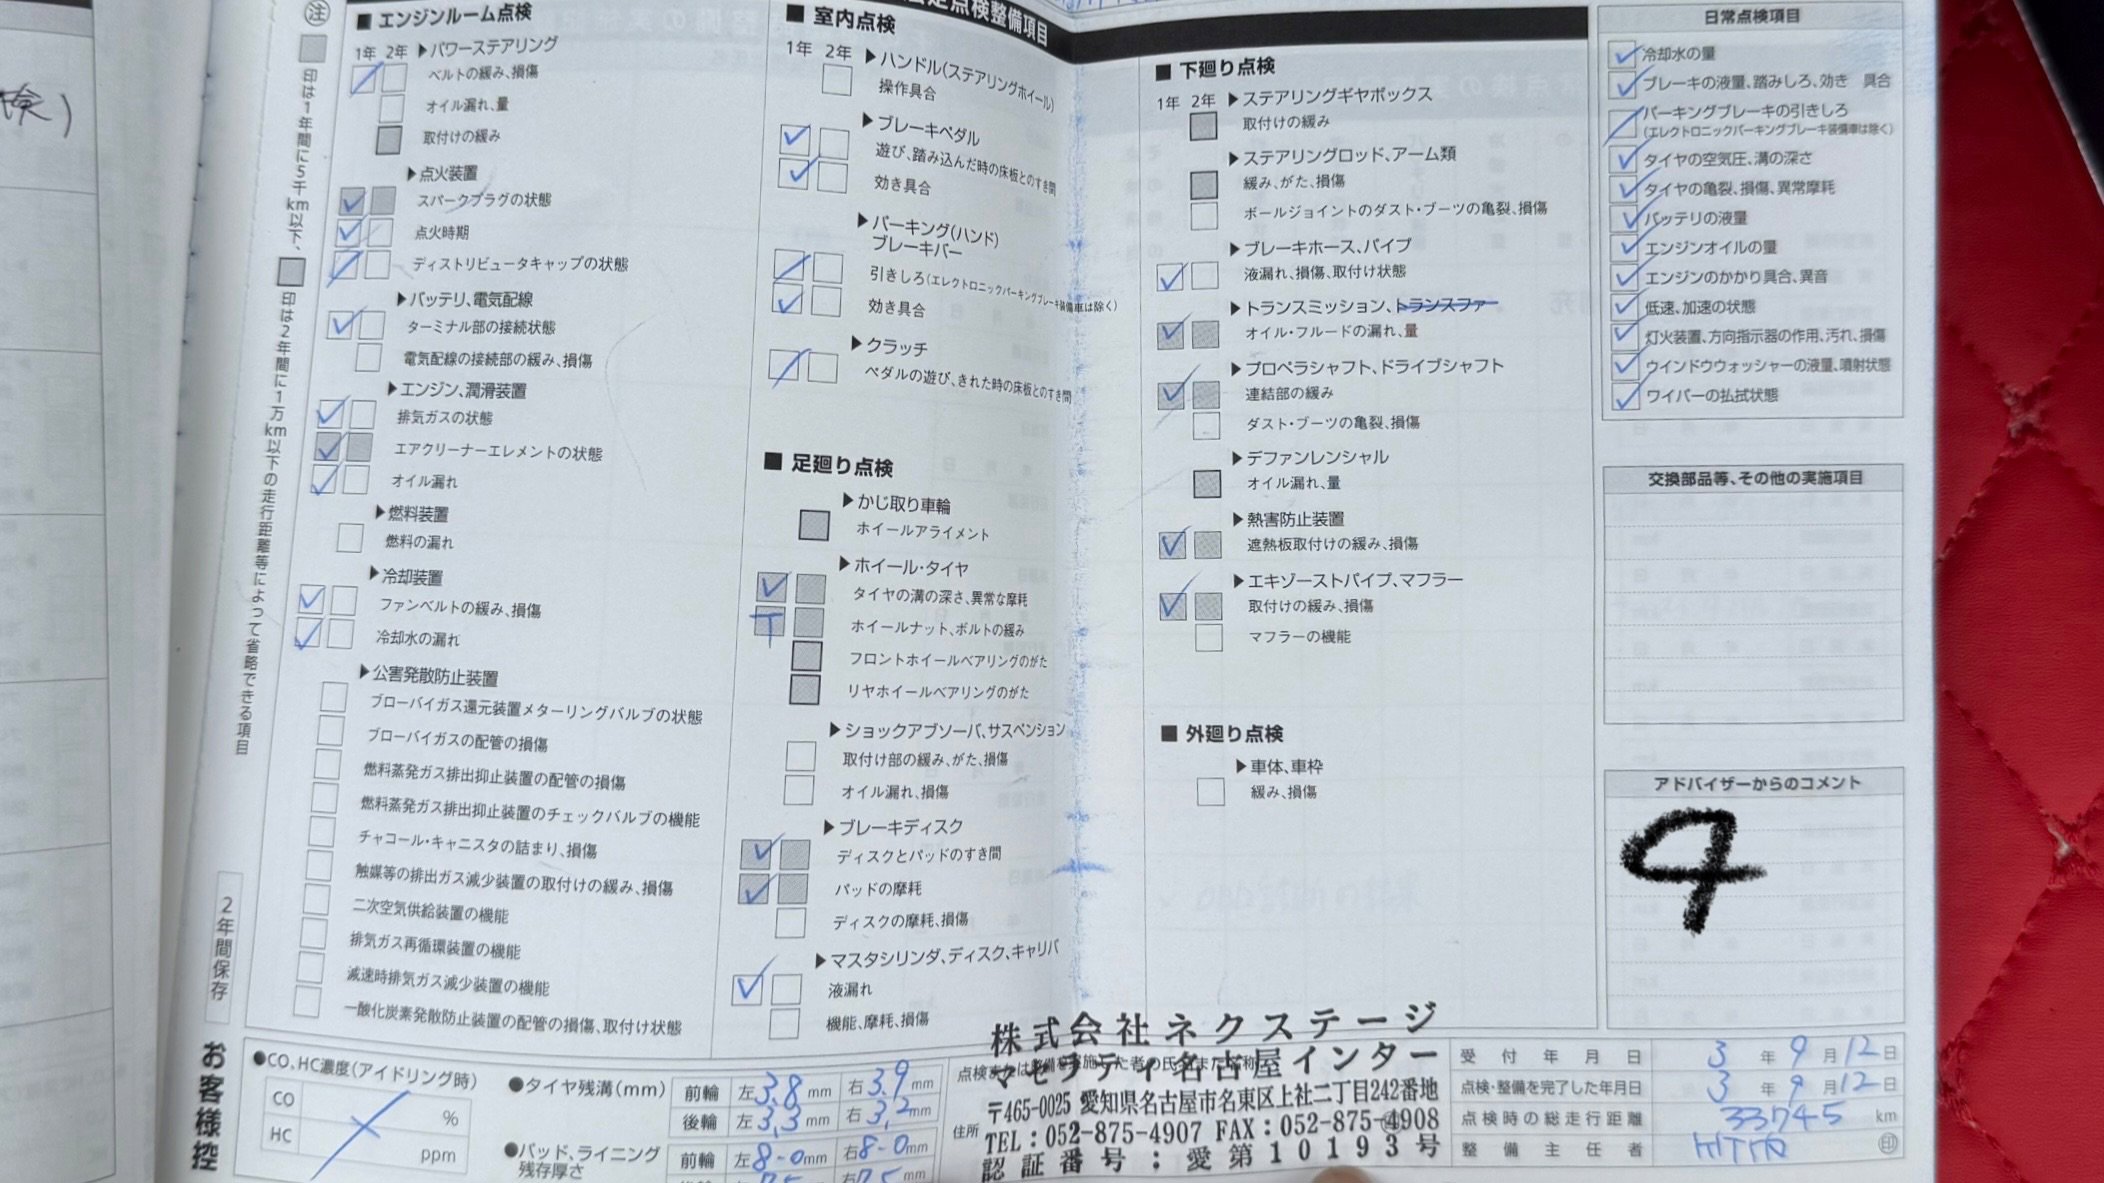 検)
注
印は1年間に5千km以下、
印は2年間に1万km以下の走行距離等によって省略できる項目
2年間保存
お客様控
点検整備項目
■ エンジンルーム点検
1年 2年
▶パワーステアリング
ベルトの緩み、損傷
オイル漏れ、量
取付けの緩み
▶点火装置
スパークプラグの状態
点火時期
ディストリビュータキャップの状態
▶バッテリ、電気配線
ターミナル部の接続状態
電気配線の接続部の緩み、損傷
▶エンジン、潤滑装置
排気ガスの状態
エアクリーナーエレメントの状態
オイル漏れ
▶燃料装置
燃料の漏れ
▶冷却装置
ファンベルトの緩み、損傷
冷却水の漏れ
▶公害発散防止装置
ブローバイガス還元装置メターリングバルブの状態
ブローバイガスの配管の損傷
燃料蒸発ガス排出抑止装置の配管の損傷
燃料蒸発ガス排出抑止装置のチェックバルブの機能
チャコール・キャニスタの詰まり、損傷
触媒等の排出ガス減少装置の取付けの緩み、損傷
二次空気供給装置の機能
排気ガス再循環装置の機能
減速時排気ガス減少装置の機能
一酸化炭素発散防止装置の配管の損傷、取付け状態
■ 室内点検
1年 2年
▶ハンドル(ステアリングホイール)
操作具合
▶ブレーキペダル
遊び、踏み込んだ時の床板とのすき間
効き具合
▶パーキング(ハンド)
ブレーキバー
引きしろ(エレクトロニックパーキングブレーキ装備車は除く)
効き具合
▶クラッチ
ペダルの遊び、きれた時の床板とのすき間
■ 足廻り点検
▶かじ取り車輪
ホイールアライメント
▶ホイール・タイヤ
タイヤの溝の深さ、異常な摩耗
T ホイールナット、ボルトの緩み
フロントホイールベアリングのがた
リヤホイールベアリングのがた
▶ショックアブソーバ、サスペンション
取付け部の緩み、がた、損傷
オイル漏れ、損傷
▶ブレーキディスク
ディスクとパッドのすき間
パッドの摩耗
ディスクの摩耗、損傷
▶マスタシリンダ、ディスク、キャリパ
液漏れ
機能、摩耗、損傷
■ 下廻り点検
1年 2年
▶ステアリングギヤボックス
取付けの緩み
▶ステアリングロッド、アーム類
緩み、がた、損傷
ボールジョイントのダスト・ブーツの亀裂、損傷
▶ブレーキホース、パイプ
液漏れ、損傷、取付け状態
▶トランスミッション、トランスファ
オイル・フルードの漏れ、量
▶プロペラシャフト、ドライブシャフト
連結部の緩み
ダスト・ブーツの亀裂、損傷
▶デファンレンシャル
オイル漏れ、量
▶熱害防止装置
遮熱板取付けの緩み、損傷
▶エキゾーストパイプ、マフラー
取付けの緩み、損傷
マフラーの機能
■ 外廻り点検
▶車体、車枠
緩み、損傷
日常点検項目
冷却水の量
ブレーキの液量、踏みしろ、効き 具合
パーキングブレーキの引きしろ
(エレクトロニックパーキングブレーキ装備車は除く)
タイヤの空気圧、溝の深さ
タイヤの亀裂、損傷、異常摩耗
バッテリの液量
エンジンオイルの量
エンジンのかかり具合、異音
低速、加速の状態
灯火装置、方向指示器の作用、汚れ、損傷
ウインドウウォッシャーの液量、噴射状態
ワイパーの払拭状態
交換部品等、その他の実施項目
アドバイザーからのコメント
4
●CO、HC濃度(アイドリング時)
CO %
HC ppm
●タイヤ残溝(mm)
前輪 左3.8mm 右3.9mm
後輪 左3.3mm 右3.2mm
●パッド、ライニング
残存厚さ
前輪 左8.0mm 右8.0mm
左7.5mm 右7.5mm
株式会社ネクステージ
マセラティ名古屋インター
〒465-0025 愛知県名古屋市名東区上社二丁目242番地
住所
TEL:052-875-4907 FAX:052-875-4908
認証番号:愛第10193号
受付年月日 3年9月12日
点検・整備を完了した年月日 3年9月12日
点検時の総走行距離 33745 km
整備主任者 印